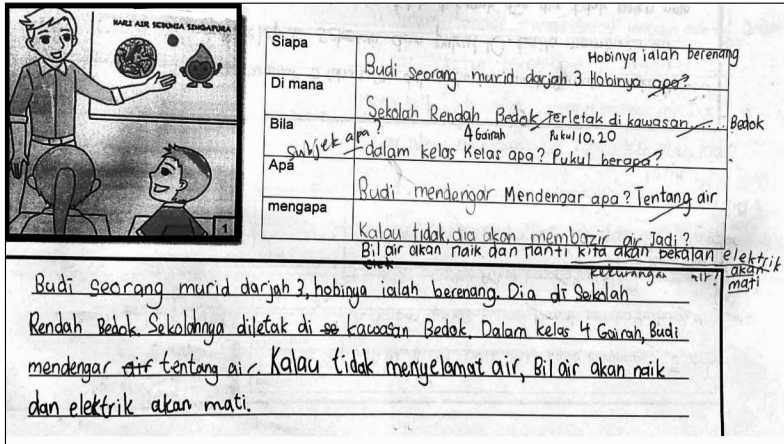 HARI AIR SEDUNIA SINGAPURA
1
Siapa
Hobinya ialah berenang
Budi seorang murid darjah 3 Hobinya apa?
Di mana
Sekolah Rendah Bedok Terletak di kawasan ..... Bedok
Bila
4 Gairah Pukul 10.20
Subjek apa? dalam kelas Kelas apa? Pukul berapa?
Apa
Budi mendengar Mendengar apa? Tentang air
mengapa
Kalau tidak, dia akan membazir air Jadi?
Bil air akan naik dan nanti kita akan bekalan elektrik
kekurangan air? akan
mati
Budi seorang murid darjah 3, hobinya ialah berenang. Dia di Sekolah
Rendah Bedok. Sekolahnya diletak di kawasan Bedok. Dalam kelas 4 Gairah, Budi
mendengar air tentang air. Kalau tidak menyelamat air, Bil air akan naik
dan elektrik akan mati.